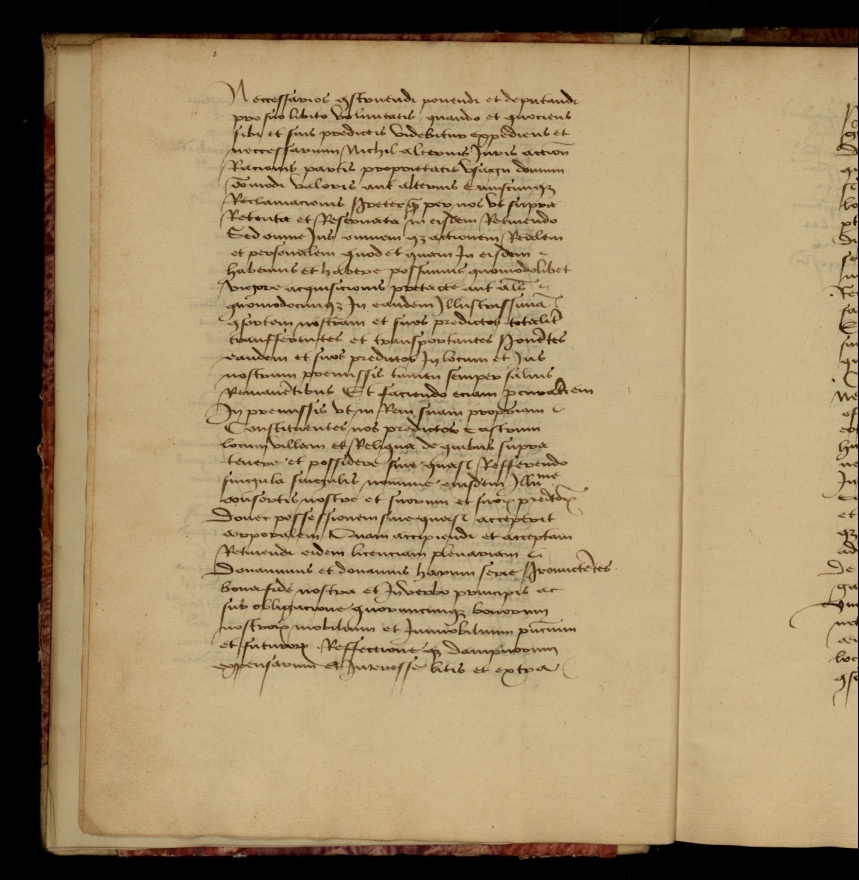 Neccessarios construendi ponendi et deputandi
pro suo libito voluntatis quando et quociens
sibi et suis predictis videbitur expediens et
neccessarium Nichil alterius Juris action
Racionis partis proprietatis usagii domini
comodi valoris aut alterius cuiuscunque
Reclamacionis preterquam per nos ut supra
Retenta et Reservata in eisdem Retinendo
Sed omne Jus omnem que actionem Realem
et personalem quod et quam in eisdem
habemus et habere possumus quomodolibet
vigore acquisicionis pretacte aut alias
quomodocunque In eandem Illustrissimam
consortem nostram et suos predictos totaliter
transfferentes et transportantes Ponentes
eandem et suos predictos In locum et Jus
nostrum premissis tamen semper salvis
Remanentibus Et faciendo eciam procuratricem
In premissis ut in Rem suam propriam
Constituentes nos predictos castrum
locum villam et Reliqua de quibus supra
tenere et possidere sive quasi Refferendo
singula singulis nomine eiusdem Illustrissime
consortis nostre et suorum et predictorum
Donec possessionem sive quasi acceperit
corporalem Quam accipiendi et acceptam
Retinendi eidem licenciam plenariam
Donavimus et donamus harum serie Promictentes
bona fide nostra et In verbo principis ac
sub obligacione quorumcunque bonorum
nostrorum mobilium et Inmobilium presencium
et futurorum Reffectione que dampnorum
expensarum et Interesse litis et extra